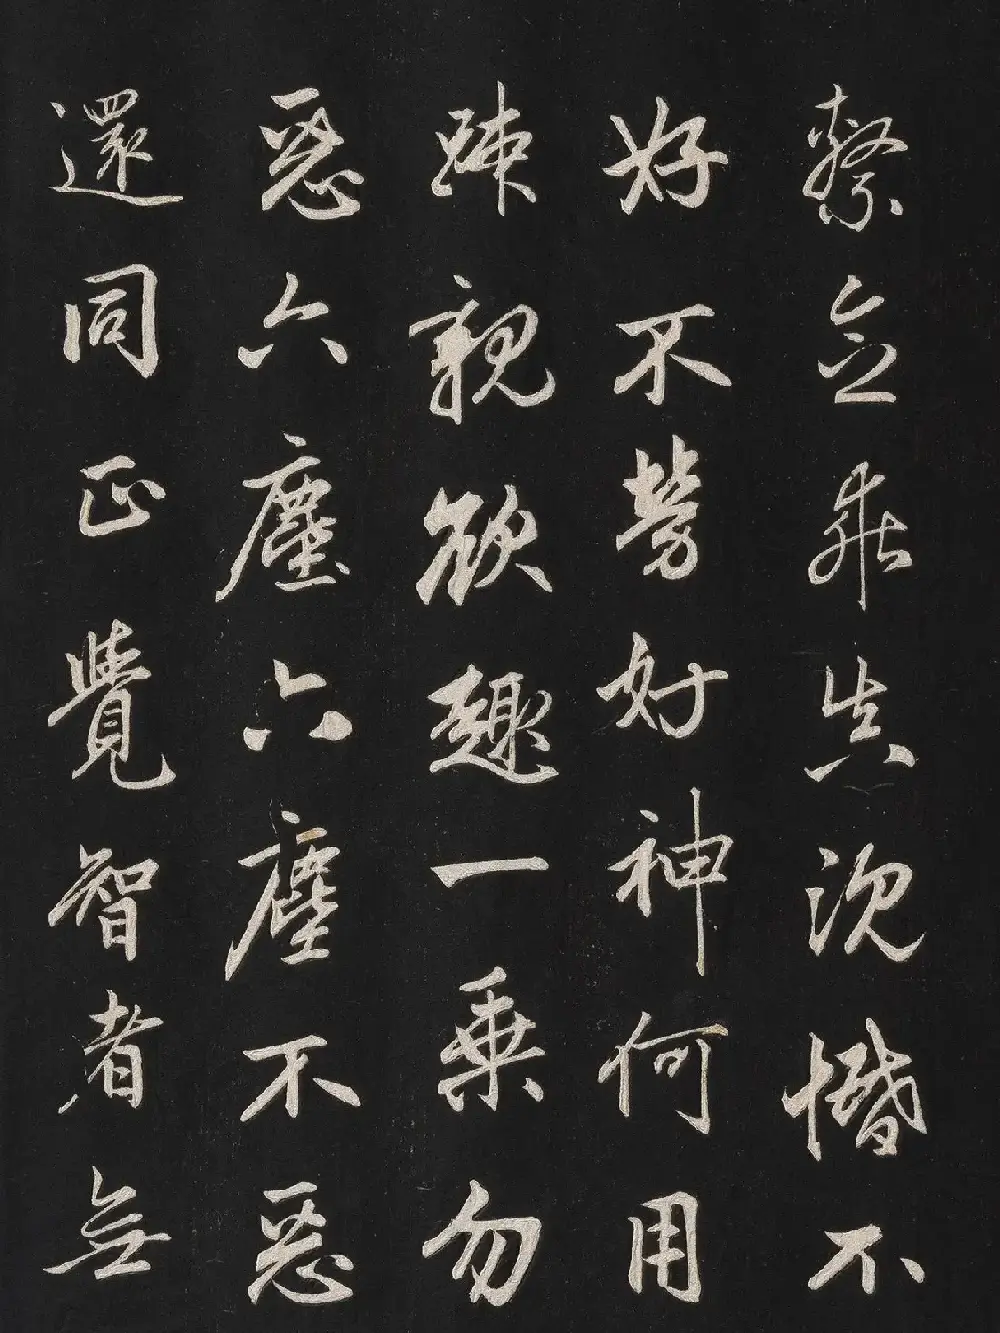 繫念乖真沉惛不
好不勞好神何用
踈親欲趣一乘勿
惡六塵六塵不惡
還同正覺智者無